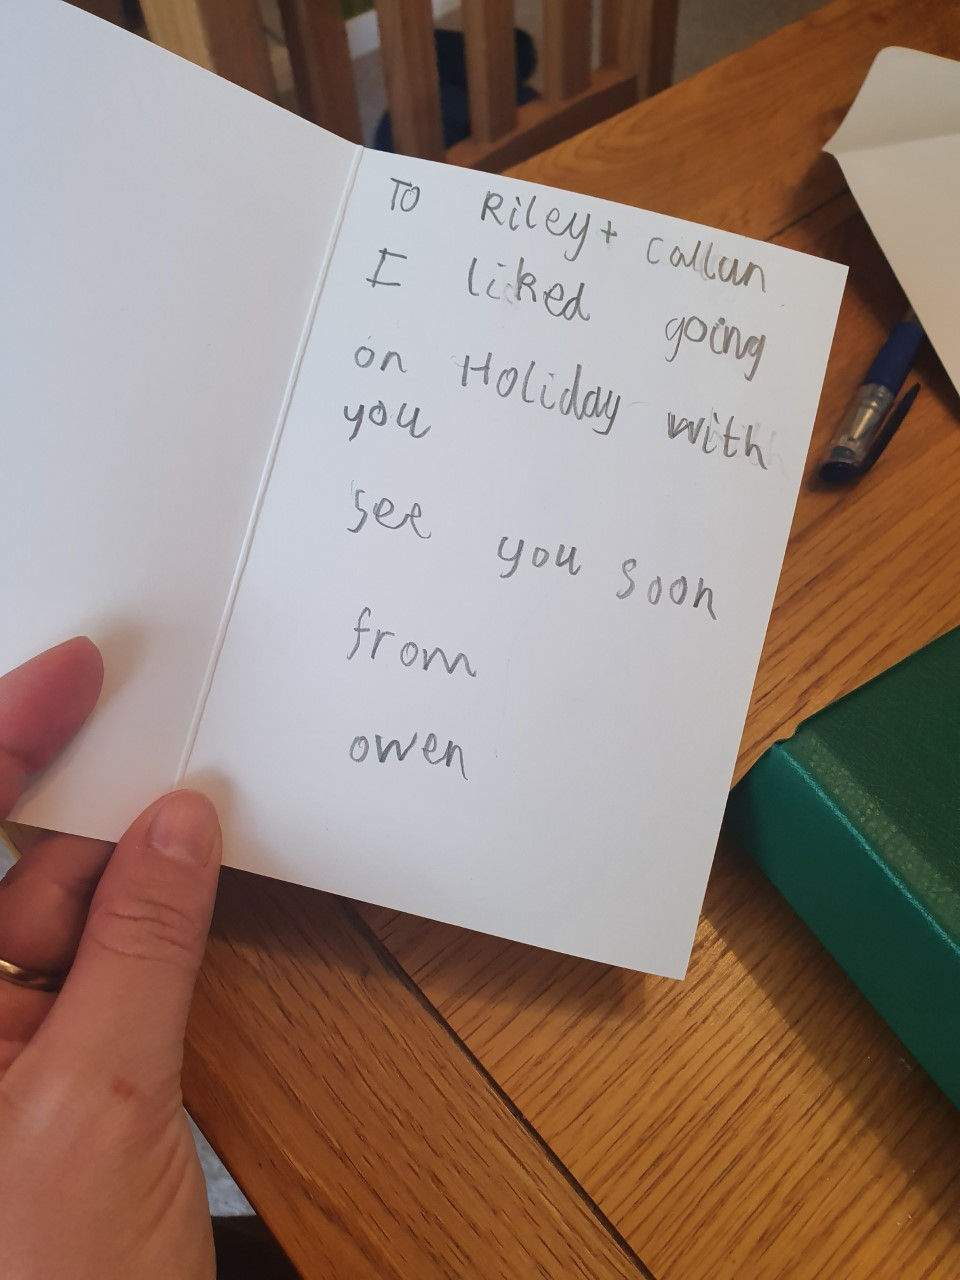 To Riley + Callun
I liked going
on Holiday with
you
See you soon
from
owen